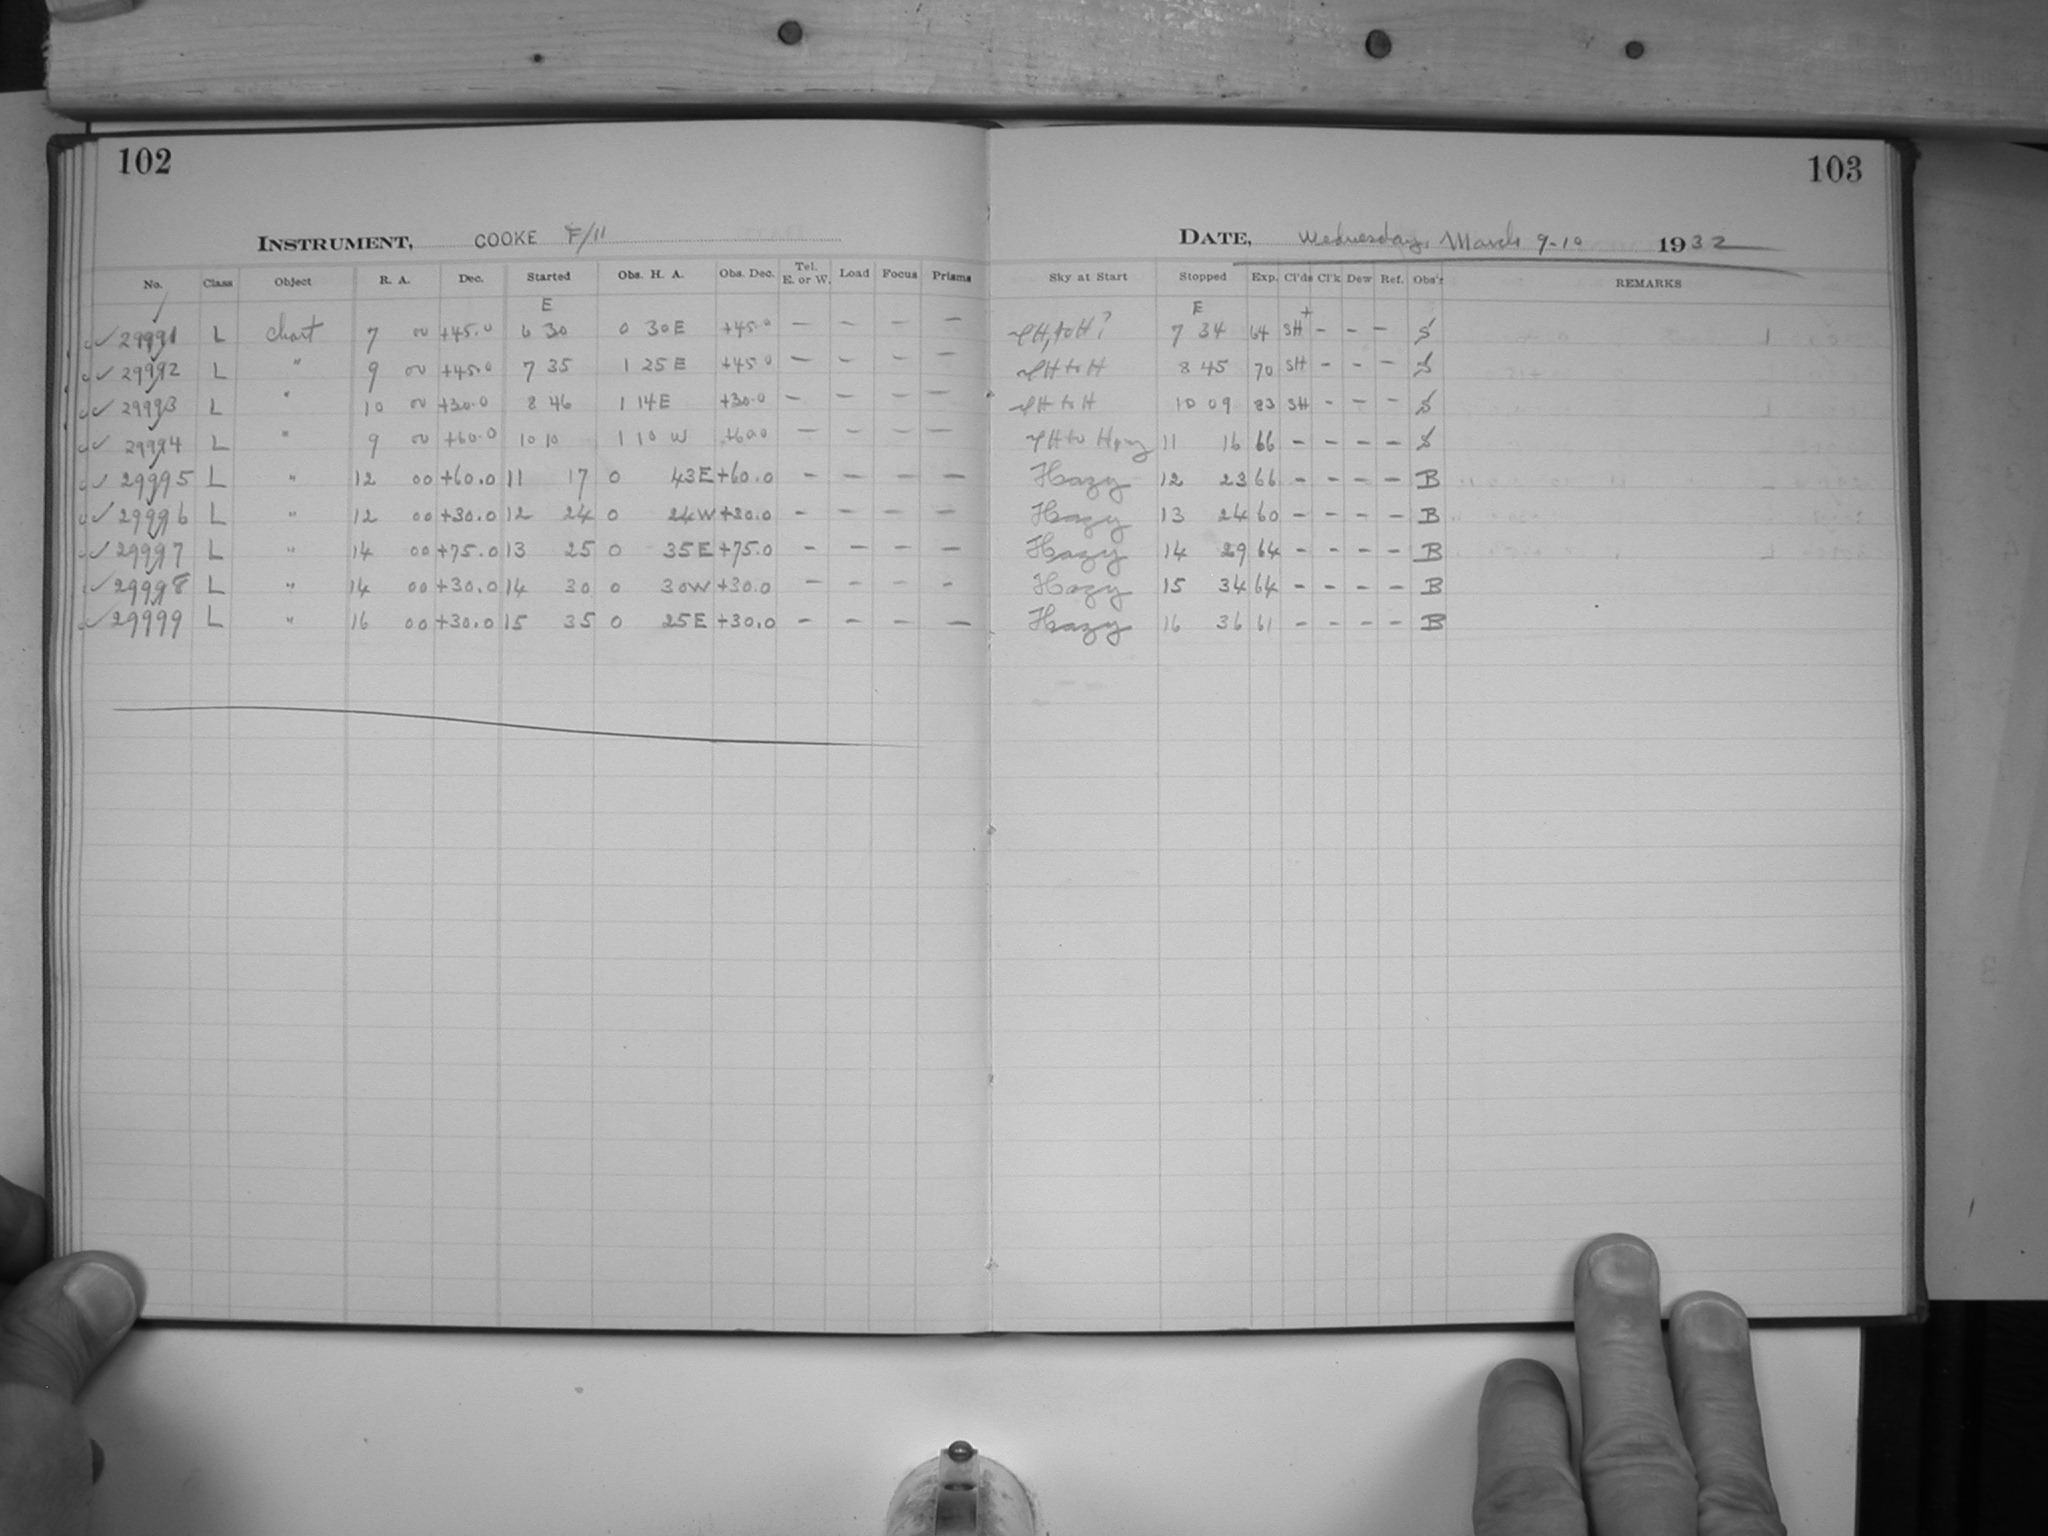 102
103
INSTRUMENT, COOKE F/11
DATE, Wednesday, March 9-10 1932
No. Class Object R. A. Dec. Started Obs. H. A. Obs. Dec. Tel. E. or W. Load Focus Prisms Sky at Start Stopped Exp. Cl'ds Cl'k Dew Ref. Obs'r REMARKS
E E
✓ 29991 L chart 7 00 +45.0 6 30 0 30 E +45.0 — — — — 7 34 64 SH+ - - - S
✓ 29992 L " 9 00 +45.0 7 35 1 25 E +45.0 — — — — H to H 8 45 70 SH - - - S
✓ 29993 L " 10 00 +30.0 8 46 1 14 E +30.0 — — — — H to H 10 09 83 SH - - - S
✓ 29994 L " 9 00 +60.0 10 10 1 10 W +60.0 — — — — H to Hazy 11 16 66 - - - - S
✓ 29995 L " 12 00 +60.0 11 17 0 43 E +60.0 - - - - Hazy 12 23 66 - - - - B
✓ 29996 L " 12 00 +30.0 12 24 0 24 W +30.0 - - - - Hazy 13 24 60 - - - - B
✓ 29997 L " 14 00 +75.0 13 25 0 35 E +75.0 - - - - Hazy 14 29 64 - - - - B
✓ 29998 L " 14 00 +30.0 14 30 0 30 W +30.0 - - - - Hazy 15 34 64 - - - - B
✓ 29999 L " 16 00 +30.0 15 35 0 25 E +30.0 - - - - Hazy 16 36 61 - - - - B